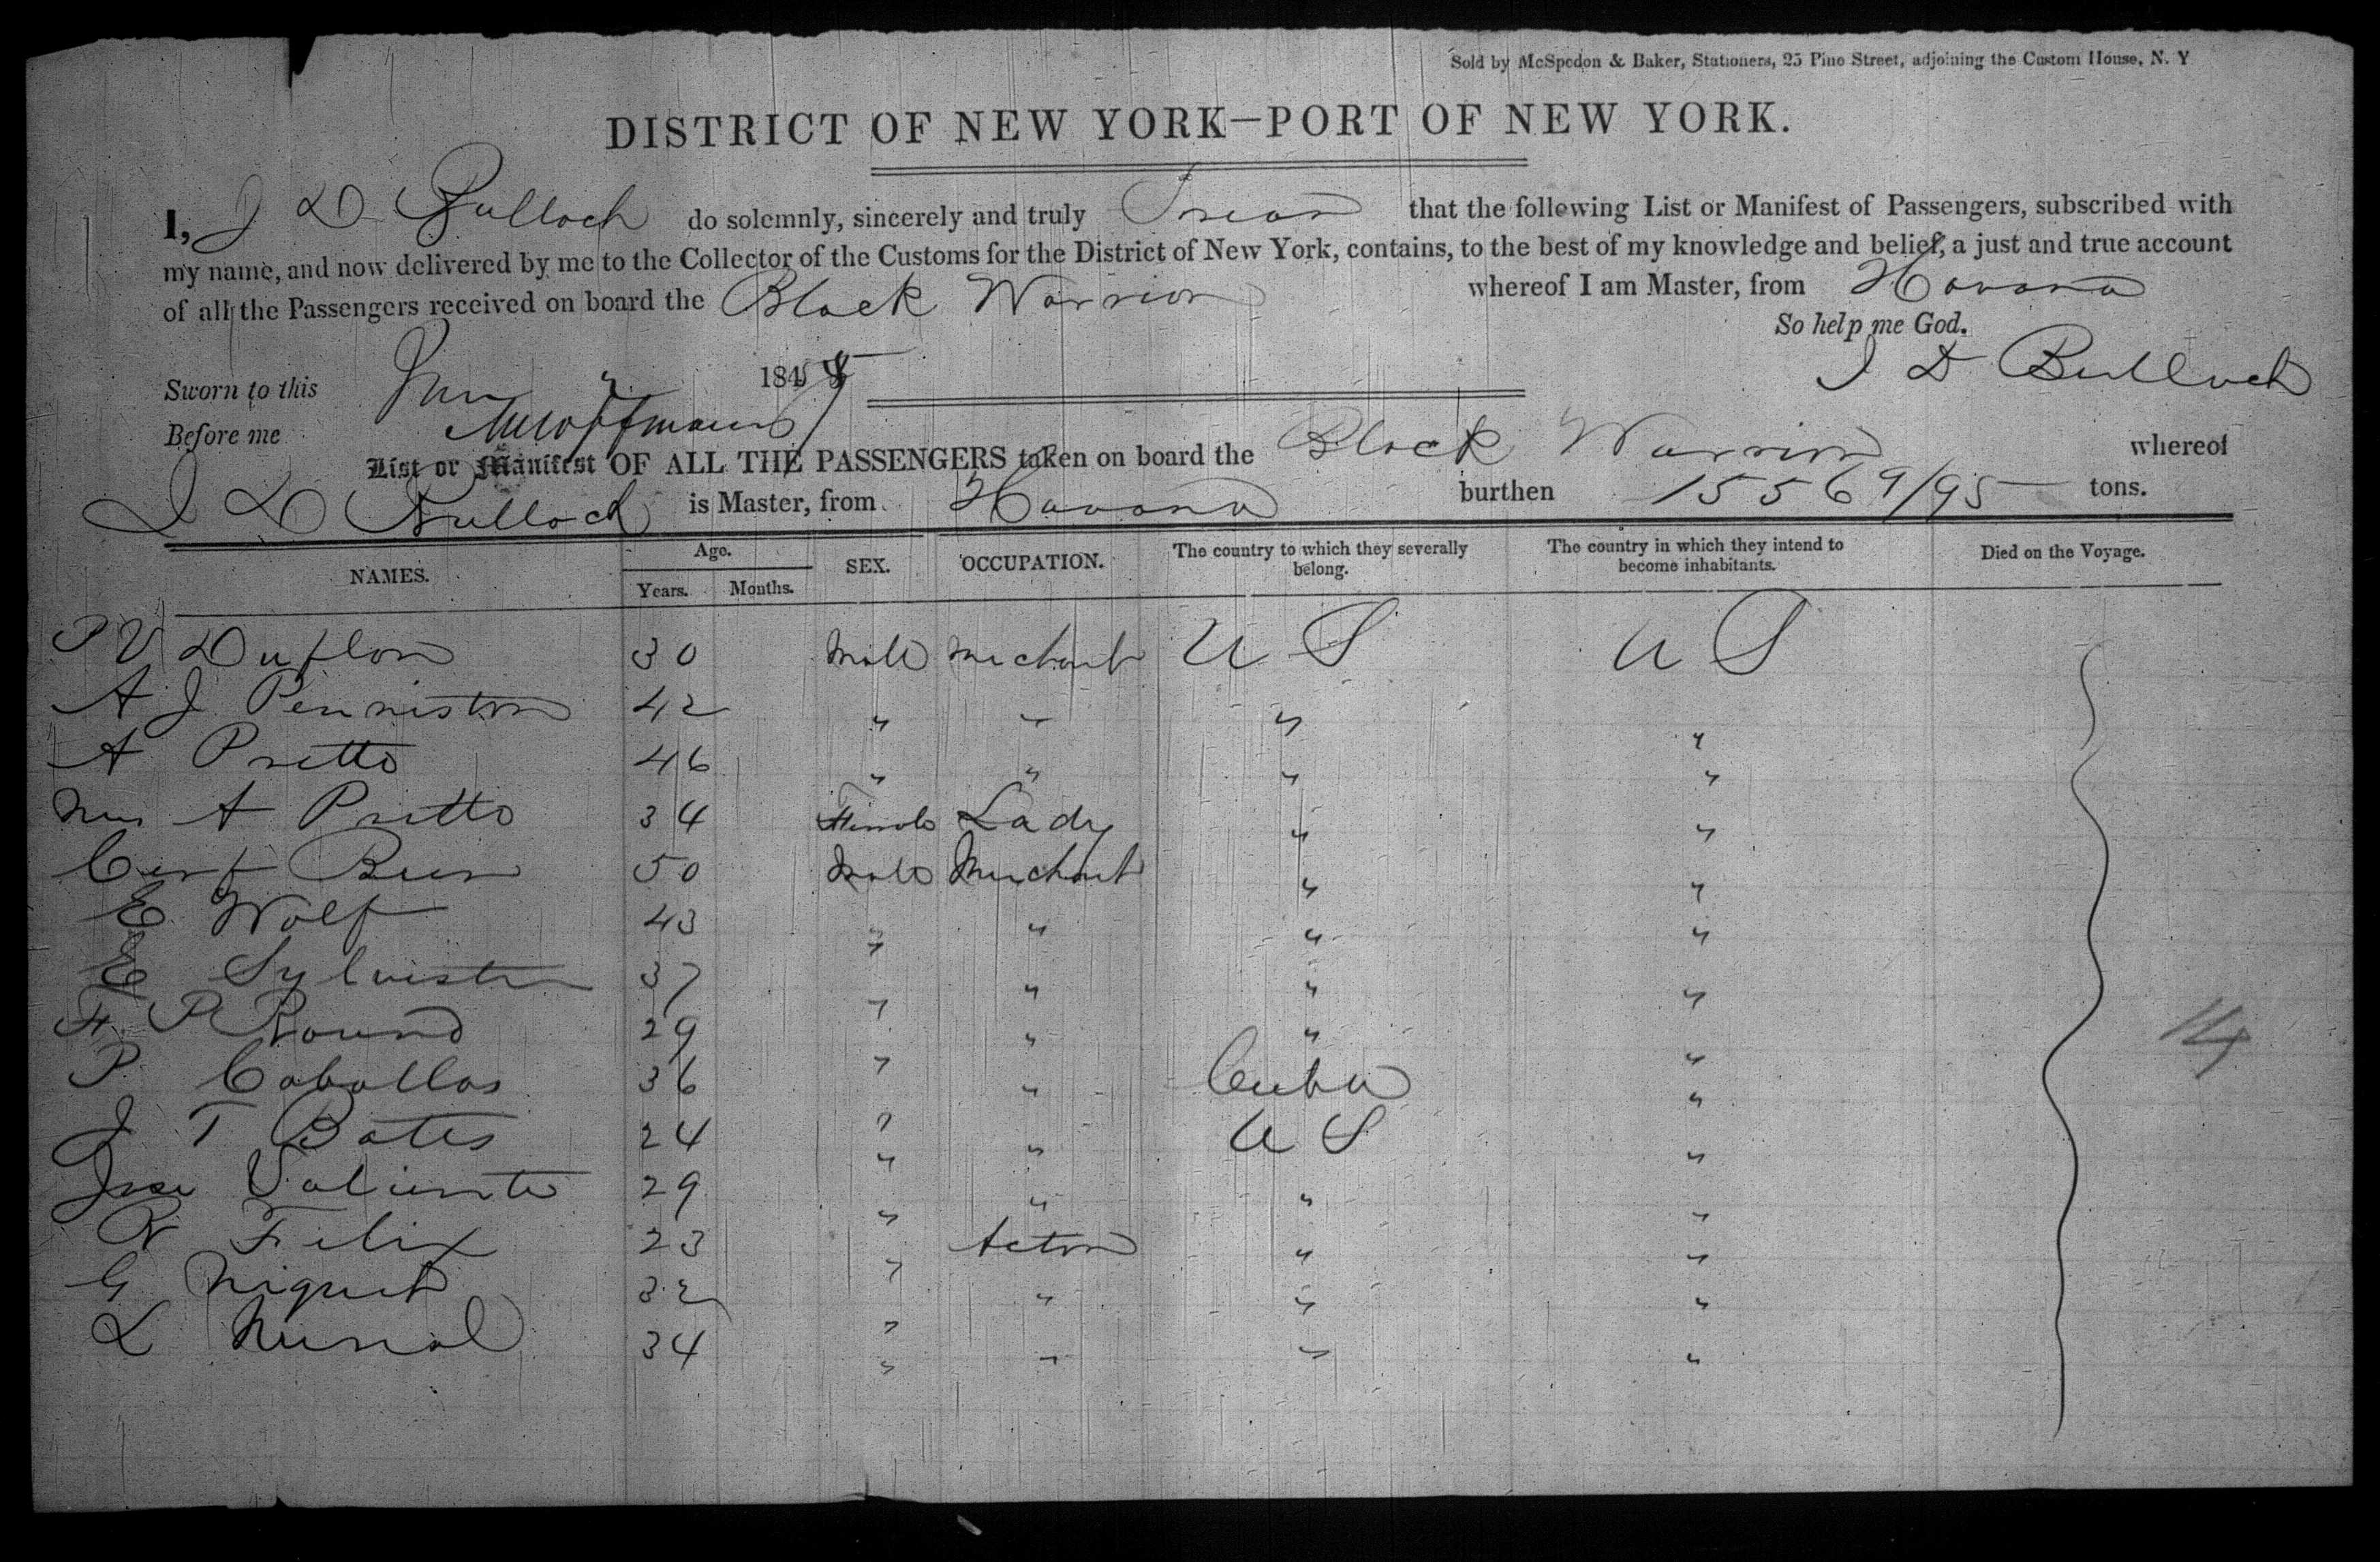 Sold by McSpedon & Baker, Stationers, 25 Pine Street, adjoining the Custom House, N. Y
DISTRICT OF NEW YORK—PORT OF NEW YORK.
I, J D Bulloch do solemnly, sincerely and truly Swear that the following List or Manifest of Passengers, subscribed with
my name, and now delivered by me to the Collector of the Customs for the District of New York, contains, to the best of my knowledge and belief, a just and true account
of all the Passengers received on board the Black Warrior whereof I am Master, from Havana
So help me God.
Sworn to this 184 J D Bulloch
Before me
List or Manifest OF ALL THE PASSENGERS taken on board the Black Warrior whereof
J D Bulloch is Master, from Havana burthen 1556 9/95 tons.
NAMES. Age. Years. Months. SEX. OCCUPATION. The country to which they severally belong. The country in which they intend to become inhabitants. Died on the Voyage.
P V Duflon 30 Male Merchant U S U S
A J Penniston 42 " " " "
A Pretto 46 " " " "
Mrs A Pretto 34 Female Lady " "
Cerf Beer 50 Male Merchant " "
E Wolf 43 " " " "
E Sylvester 37 " " " "
F. P Round 29 " " " "
P. Caballos 36 " " Cuba "
J T Bates 24 " " U S "
Jose Valiente 29 " " " "
N Felix 23 " Actor " "
G Niquet 32 " " " "
L 34 " " " "
14